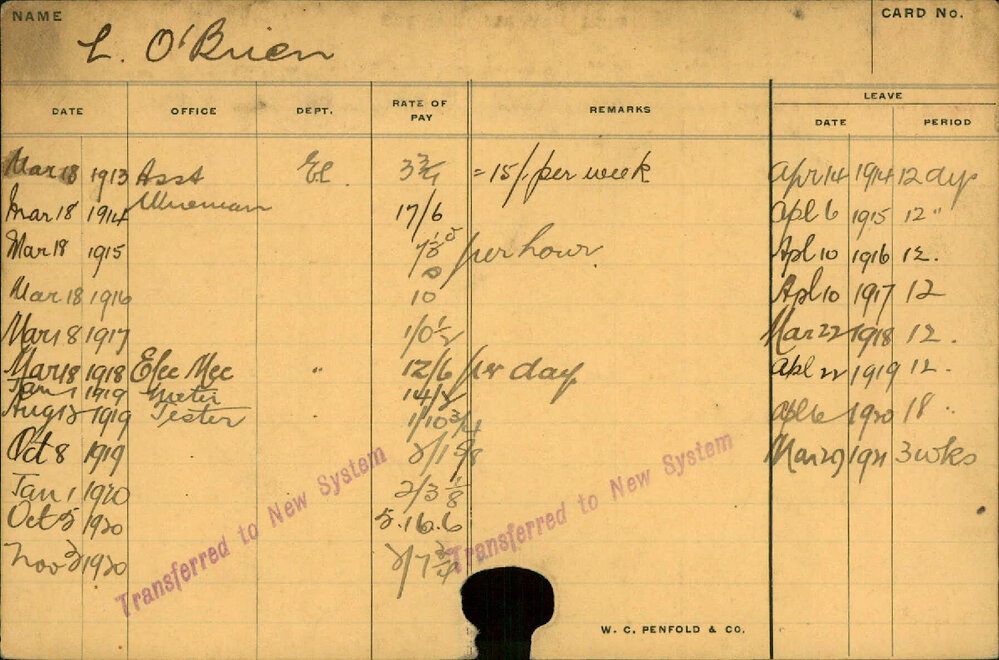 NAME L. O'Brien CARD No.
DATE OFFICE DEPT. RATE OF PAY REMARKS LEAVE
DATE PERIOD
Mar 18 1913 Asst El. = 15/. per week Apr 14 1914 12 dys
Mar 18 1914 Wireman 17/6 Apl 6 1915 12 "
Mar 18 1915 per hour. Apl 10 1916 12.
Mar 18 1916 10 Apl 10 1917 12
Mar 18 1917 1/0½ Mar 22 1918 12.
Mar 18 1918 Elec Mec " 12/6 per day Apl 22 1919 12.
Jan 1 1919 Meter 14/2
Aug 12 1919 Tester 1/10 3/4 Apl 6 1920 18 "
Oct 8 1919 2/1 5/8 Mar 1921 3 wks
Jan 1 1920 2/3 1/8
Oct 5 1920 5.16.6
Nov 2 1920 2/7 3/4
Transferred to New System
Transferred to New System
W. C. PENFOLD & CO.